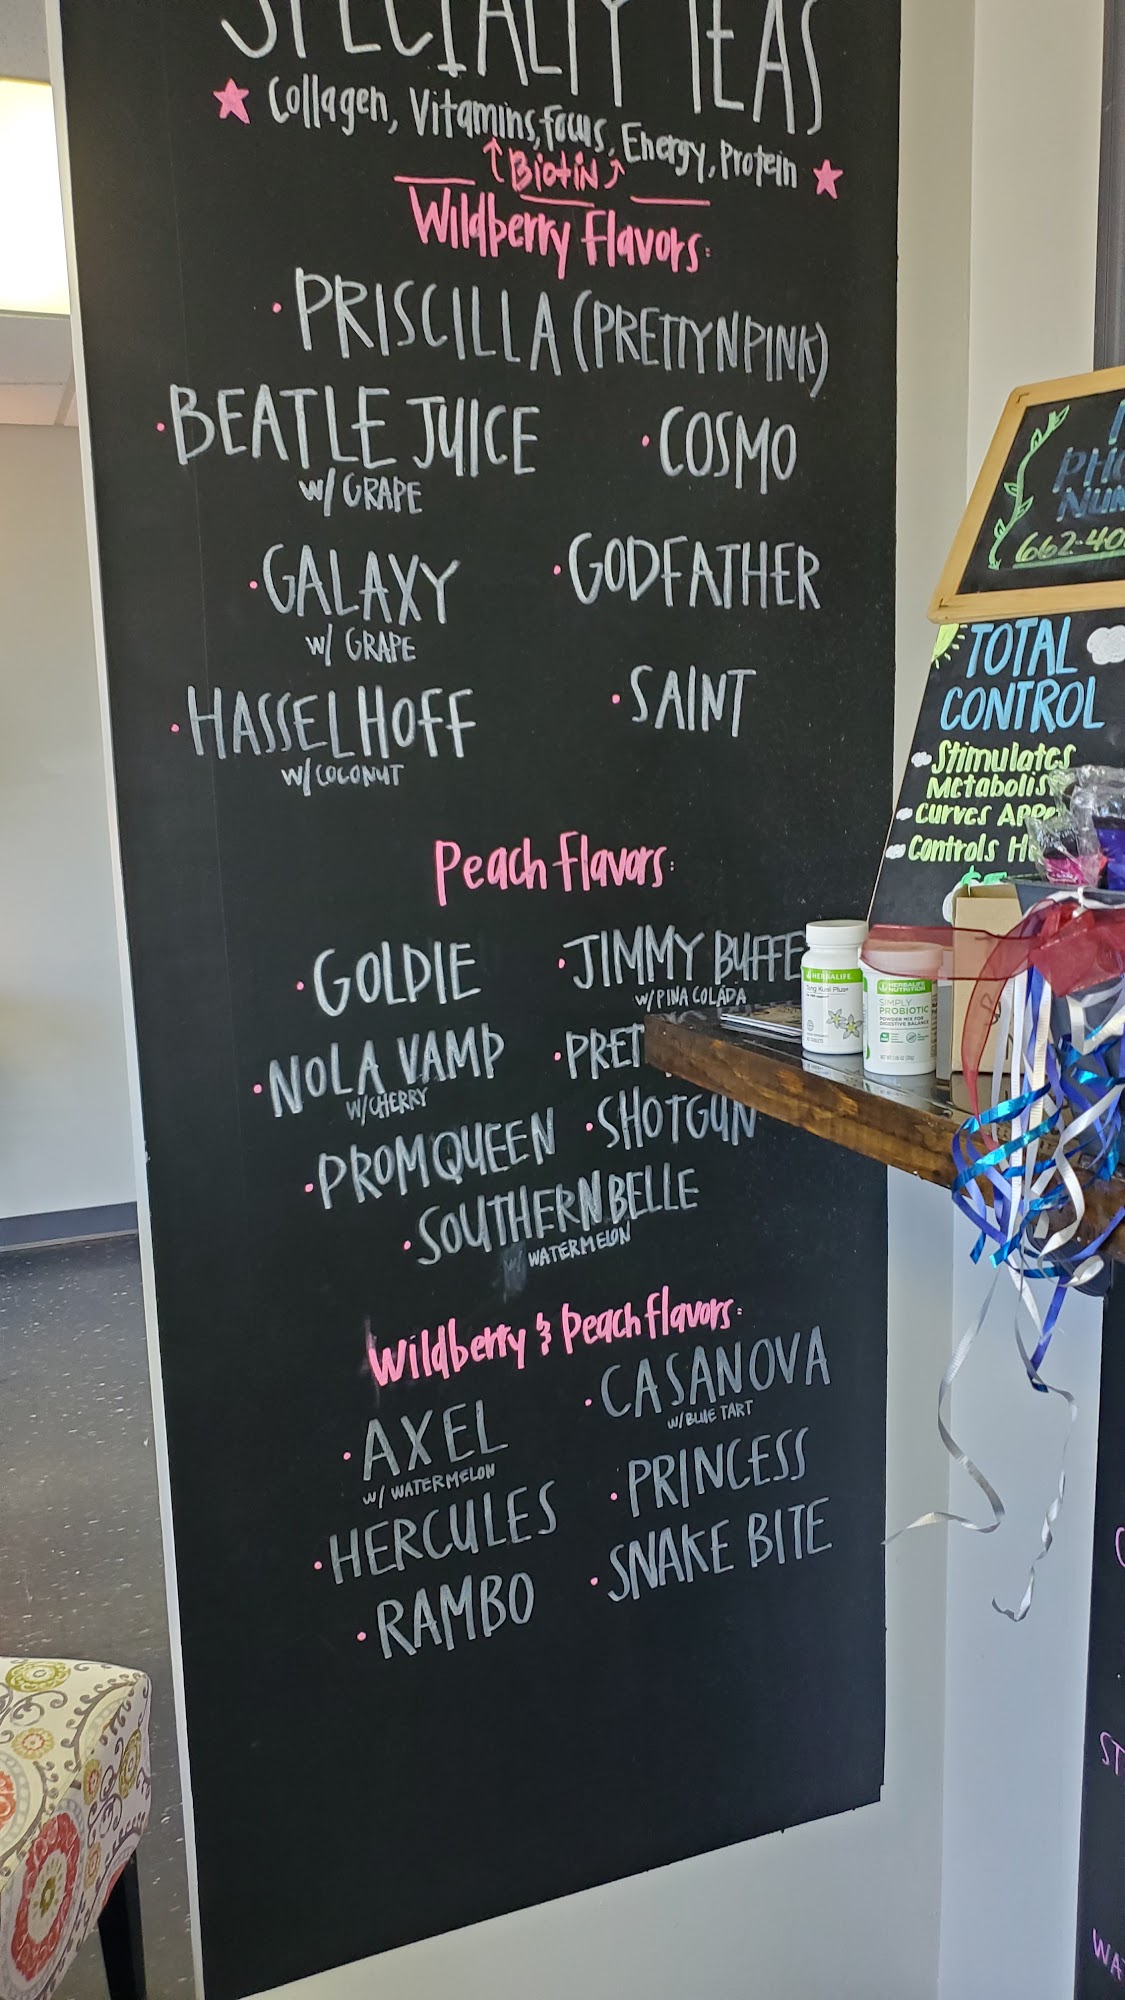 SPECIALTY TEAS
Collagen, Vitamins, Focus, Energy, Protein
↑ Biotin ↑
Wildberry Flavors:
• PRISCILLA (PRETTY N PINK)
• BEATLE JUICE
w/ GRAPE
• COSMO
• GALAXY
w/ GRAPE
• GODFATHER
• HASSELHOFF
w/ COCONUT
• SAINT
Peach Flavors:
• GOLDIE
• JIMMY BUFFE
w/ PINA COLADA
• NOLA VAMP
w/ CHERRY
• PRET
• PROM QUEEN
• SHOTGUN
• SOUTHERN BELLE
w/ WATERMELON
Wildberry & Peach Flavors:
• AXEL
w/ WATERMELON
• CASANOVA
w/ BLUE TART
• HERCULES
• PRINCESS
• RAMBO
• SNAKE BITE
662-40
TOTAL
CONTROL
Stimulates
Metabolis
Curves App
Controls H
HERBALIFE
Tang Kuei Plus
HERBALIFE
NUTRITION
SIMPLY
PROBIOTIC
POWDER MIX FOR
DIGESTIVE BALANCE